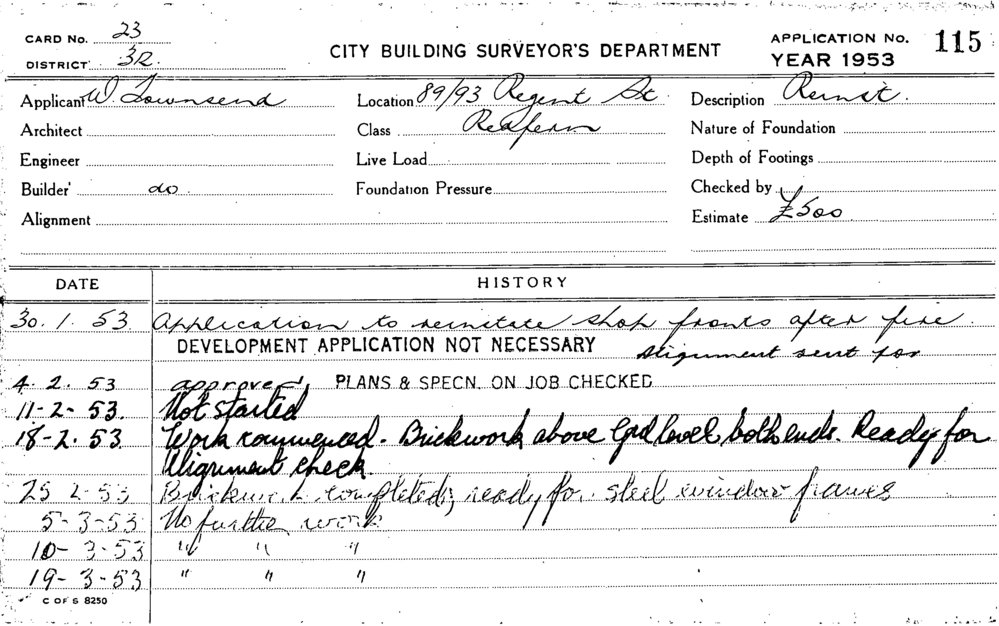 CARD No. 23
DISTRICT 32
CITY BUILDING SURVEYOR'S DEPARTMENT
APPLICATION No. 115
YEAR 1953
Applicant W. Townsend
Location 89/93 Regent St
Description Reinst.
Architect
Class Redfern
Nature of Foundation
Engineer
Live Load
Depth of Footings
Builder do
Foundation Pressure
Checked by
Alignment
Estimate £500
DATE HISTORY
30. 1. 53 Application to reinstate shop fronts after fire.
DEVELOPMENT APPLICATION NOT NECESSARY Alignment sent for
4. 2. 53 approved, PLANS & SPECN. ON JOB CHECKED
11-2-53. Not started
18-2. 53 Work commenced - Brickwork above Grd level both ends. Ready for
Alignment check.
25 2-53 Brickwork completed; ready for steel window frames
5-3-53 No further work
10-3-53 " " "
19-3-53 " " "
C OF S 8250